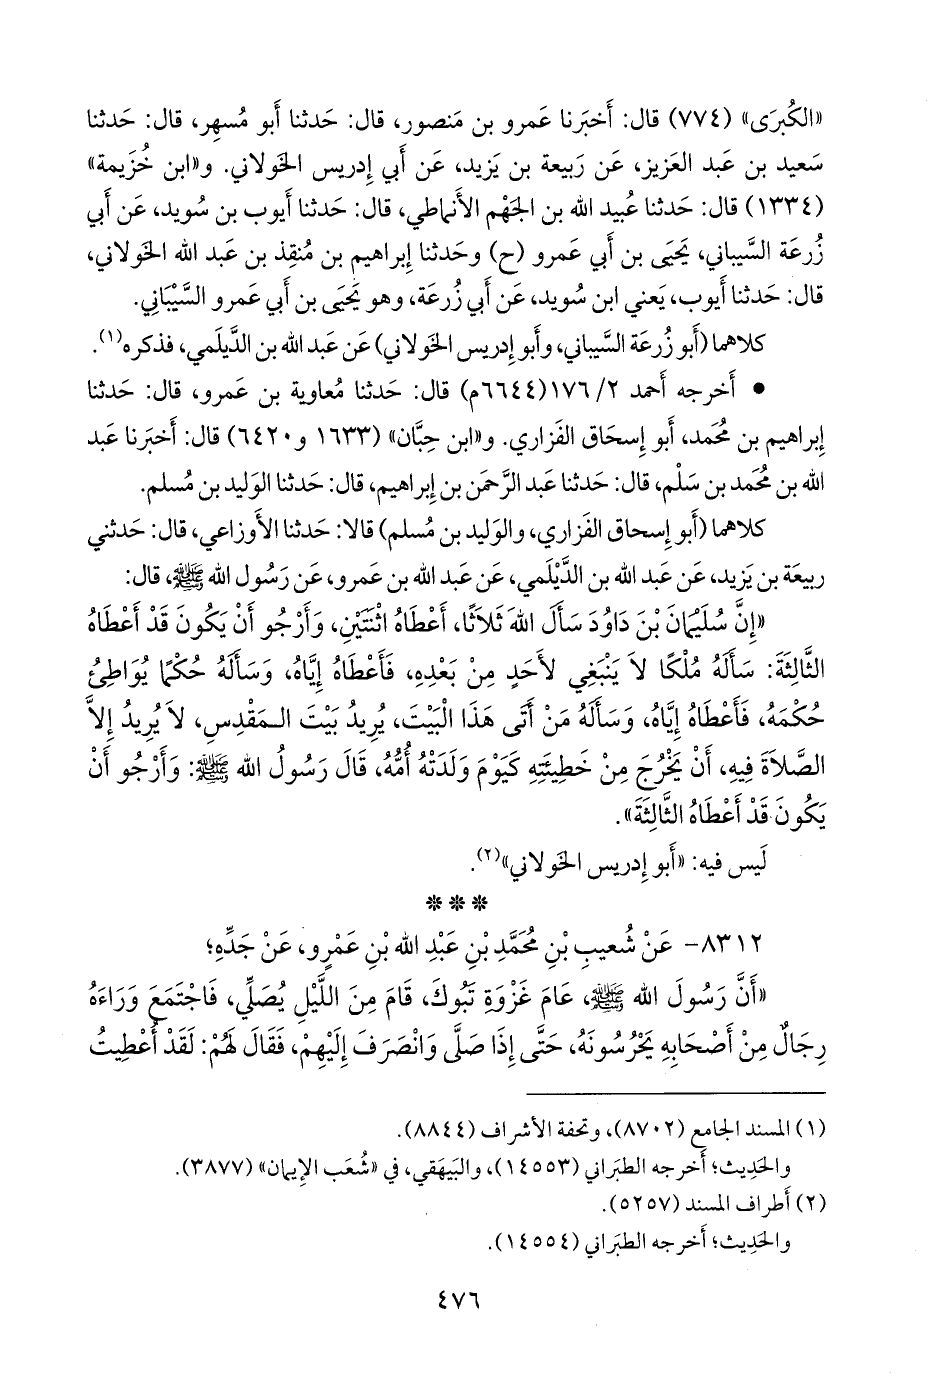 «الكُبرَى» (٧٧٤) قال: أَخبَرنا عَمرو بن مَنصور، قال: حَدثنا أَبو مُسهِر، قال: حَدثنا
سَعيد بن عَبد العَزيز، عَن رَبيعة بن يَزيد، عَن أَبي إِدريس الخَولاني. و«ابن خُزيمة»
(١٣٣٤) قال: حَدثنا عُبيد الله بن الجَهْم الأَنماطي، قال: حَدثنا أَيوب بن سُويد، عَن أَبي
زُرعَة السَّيباني، يَحيَى بن أَبي عَمرو (ح) وحَدثنا إِبراهيم بن مُنقِذ بن عَبد الله الخَولاني،
قال: حَدثنا أَيوب، يَعني ابن سُويد، عَن أَبي زُرعَة، وهو يَحيَى بن أَبي عَمرو السَّيْبَاني.
كلاهما (أَبو زُرعَة السَّيباني، وأَبو إِدريس الخَولاني) عَن عَبد الله بن الدَّيلَمي، فذكره(١).
• أَخرجه أَحمد ٢/ ١٧٦ (٦٦٤٤م) قال: حَدثنا مُعاوية بن عَمرو، قال: حَدثنا
إِبراهيم بن مُحمد، أَبو إِسحاق الفَزاري. و«ابن حِبَّان» (١٦٣٣ و٦٤٢٠) قال: أَخبَرنا عَبد
الله بن مُحمد بن سَلْم، قال: حَدثنا عَبد الرَّحمَن بن إِبراهيم، قال: حَدثنا الوَليد بن مُسلم.
كلاهما (أَبو إِسحاق الفَزاري، والوَليد بن مُسلم) قالا: حَدثنا الأَوزاعي، قال: حَدثني
ربيعَة بن يَزيد، عَن عَبد الله بن الدَّيْلَمي، عَن عَبد الله بن عَمرو، عَن رَسُول الله ﷺ، قال:
«إِنَّ سُلَيْمَانَ بْنَ دَاوُدَ سَأَلَ اللهَ ثَلَاثًا، أَعْطَاهُ اثْنَتَيْنِ، وَأَرْجُو أَنْ يَكُونَ قَدْ أَعْطَاهُ
الثَّالِثَةَ: سَأَلَهُ مُلْكًا لاَ يَنْبَغِي لأَحَدٍ مِنْ بَعْدِهِ، فَأَعْطَاهُ إِيَّاهُ، وَسَأَلَهُ حُكْمًا يُوَاطِئُ
حُكْمَهُ، فَأَعْطَاهُ إِيَّاهُ، وَسَأَلَهُ مَنْ أَتَى هَذَا الْبَيْتَ، يُرِيدُ بَيْتَ الـمَقْدِسِ، لاَ يُرِيدُ إِلاَّ
الصَّلاَةَ فِيهِ، أَنْ يَخْرُجَ مِنْ خَطِيئَتِهِ كَيَوْمَ وَلَدَتْهُ أُمُّهُ، قَالَ رَسُولُ الله ﷺ: وَأَرْجُو أَنْ
يَكُونَ قَدْ أَعْطَاهُ الثَّالِثَةَ».
لَيس فيه: «أَبو إِدريس الخَولاني»(٢).
* * *
٨٣١٢- عَنْ شُعيبِ بْنِ مُحَمَّدِ بْنِ عَبْدِ الله بْنِ عَمْرٍو، عَنْ جَدِّهِ؛
«أَنَّ رَسُولَ الله ﷺ، عَامَ غَزْوَةِ تَبُوكَ، قَامَ مِنَ اللَّيْلِ يُصَلِّي، فَاجْتَمَعَ وَرَاءَهُ
رِجَالٌ مِنْ أَصْحَابِهِ يَحْرُسُونَهُ، حَتَّى إِذَا صَلَّى وَانْصَرَفَ إِلَيْهِمْ، فَقَالَ لَهُمْ: لَقَدْ أُعْطِيتُ
(١) المسند الجامع (٨٧٠٢)، وتحفة الأشراف (٨٨٤٤).
والحَدِيث؛ أَخرجه الطبَراني (١٤٥٥٣)، والبَيهَقي، في «شُعَب الإِيمان» (٣٨٧٧).
(٢) أَطراف المسند (٥٢٥٧).
والحَدِيث؛ أَخرجه الطبَراني (١٤٥٥٤).
٤٧٦